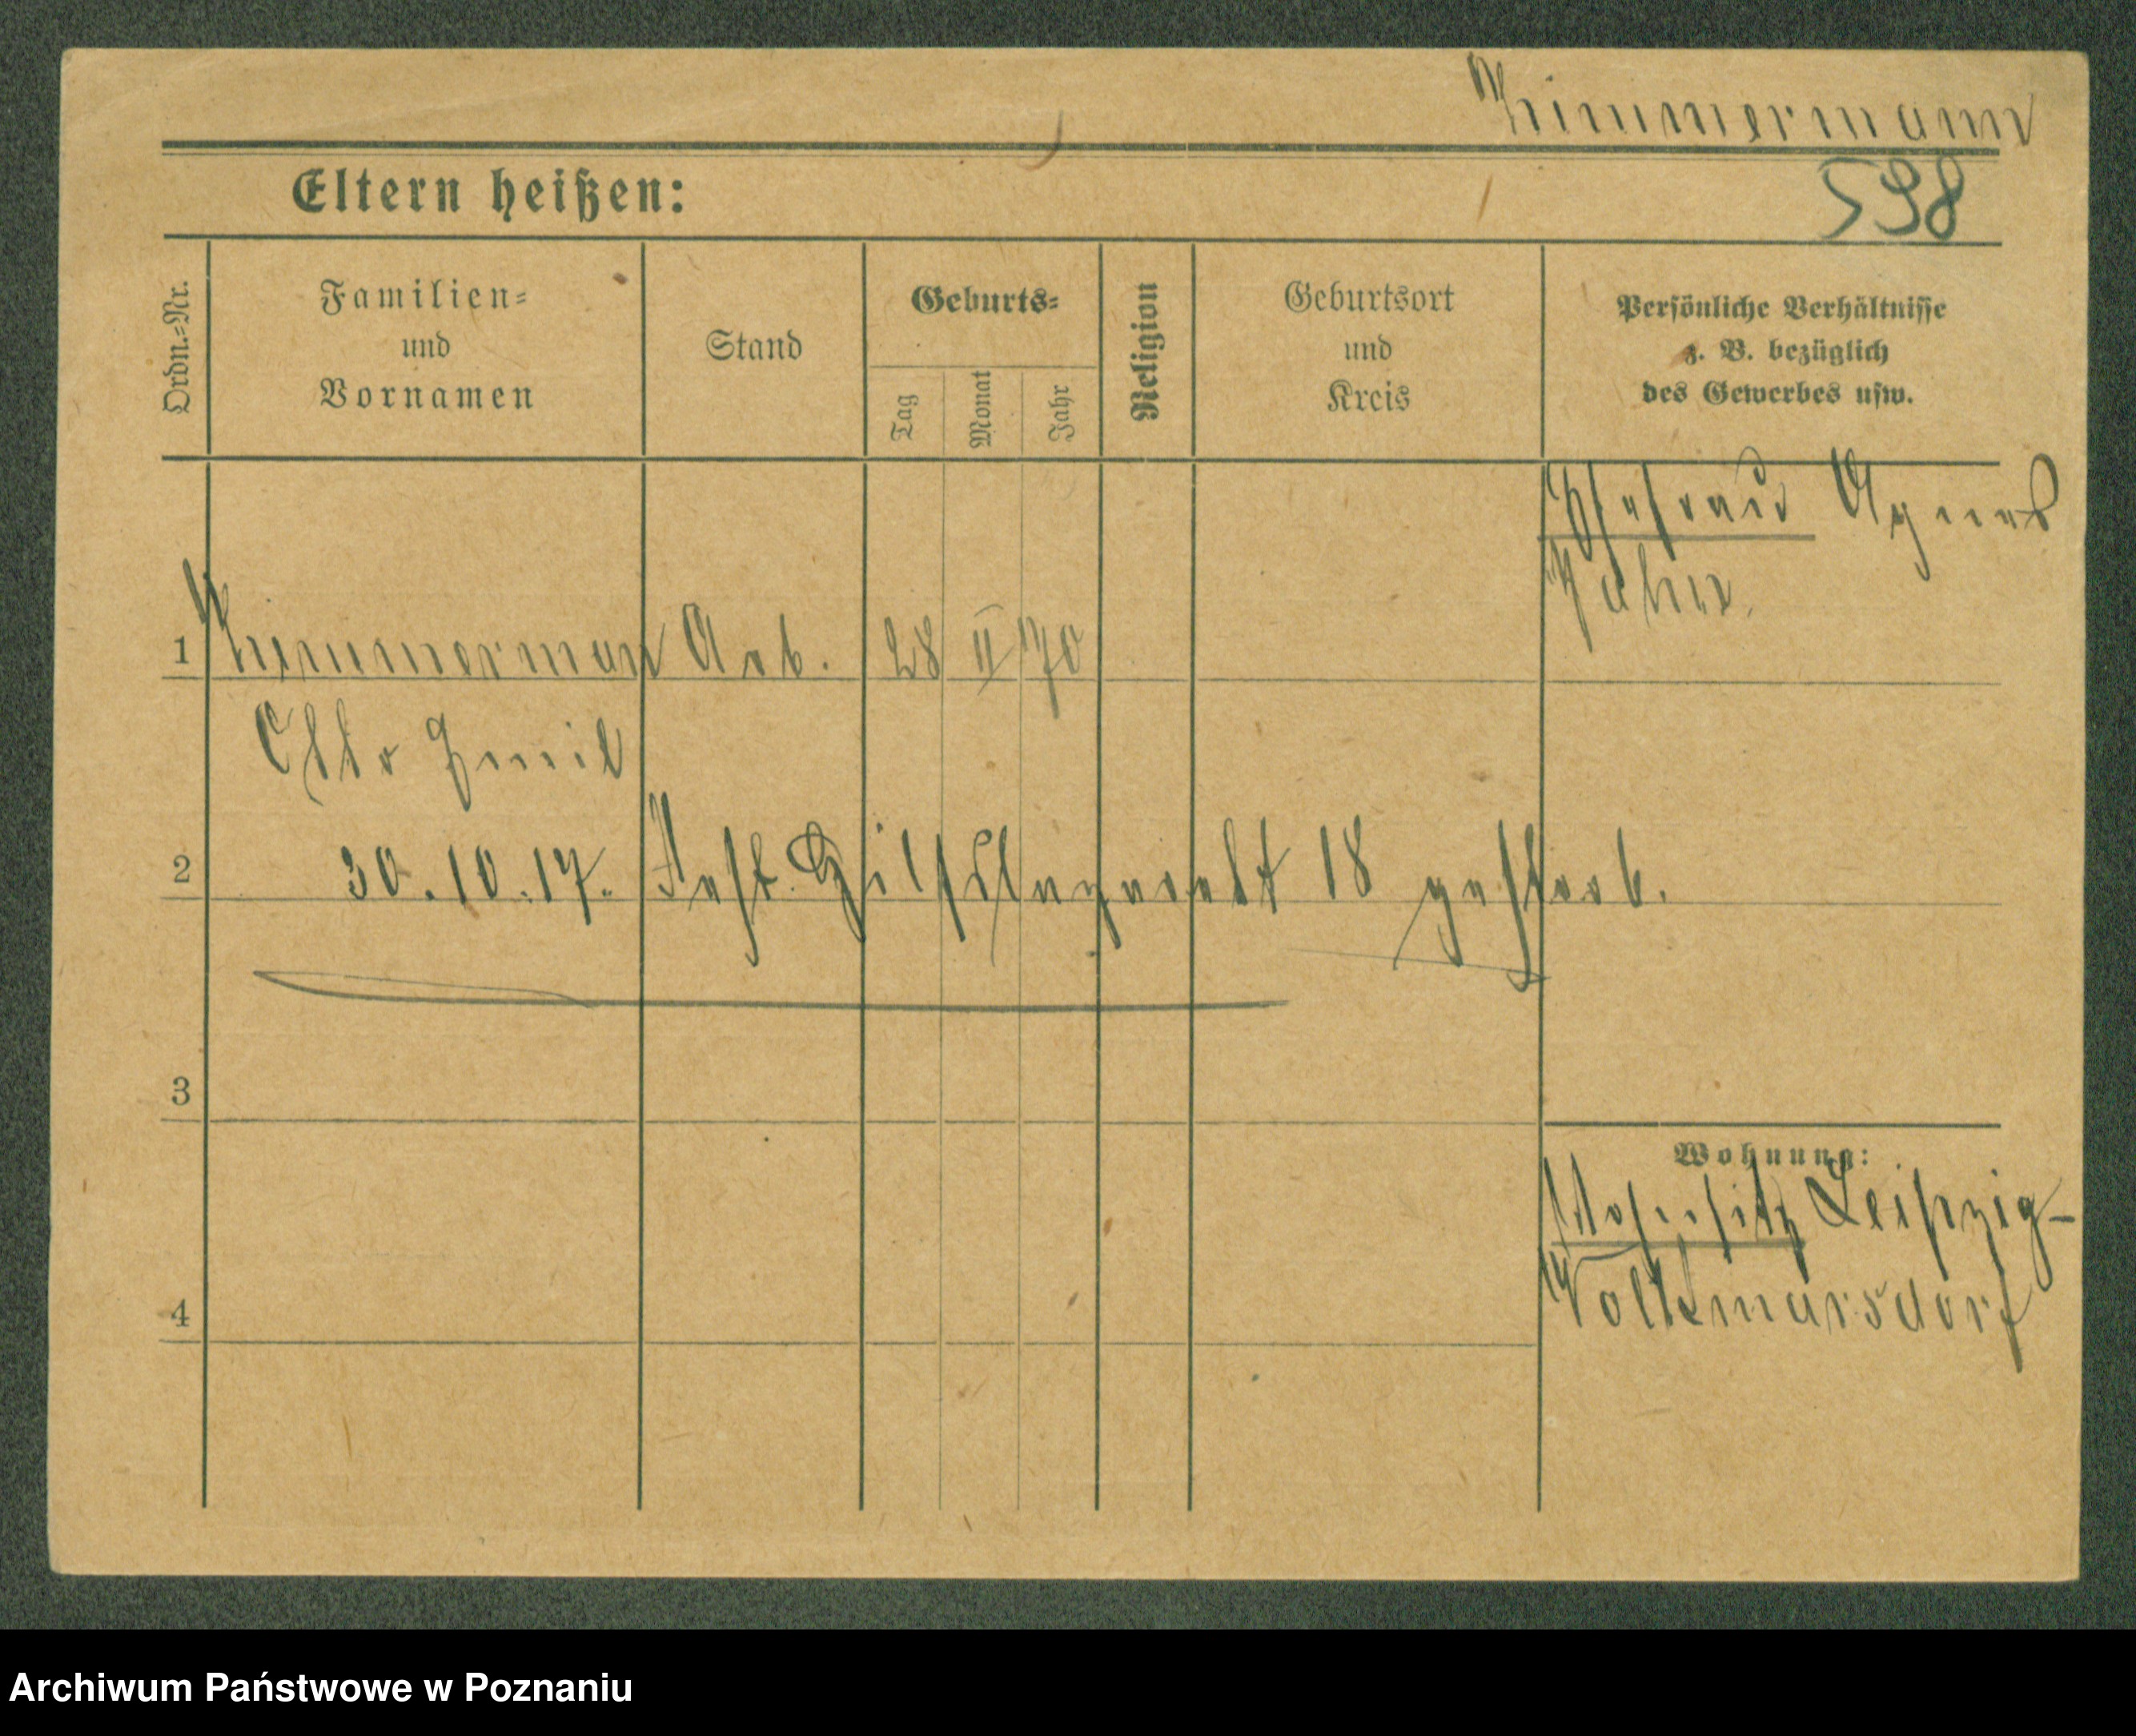 Zimmermann
Eltern heißen:
598
Ordn.-Nr.
Familien-
und
Vornamen
Stand
Geburts-
Tag
Monat
Jahr
Religion
Geburtsort
und
Kreis
Persönliche Verhältnisse
z. B. bezüglich
des Gewerbes usw.
Ehefrau Agnes
Jahn.
1 Zimmerman Arb. 28 II 70
Otto Emil
2 30.10.17. Fest. Hilfslazarett 18 gestorb.
3
Wohnung:
Wohnsitz Leipzig-
Volkmarsdorf
4
Archiwum Państwowe w Poznaniu